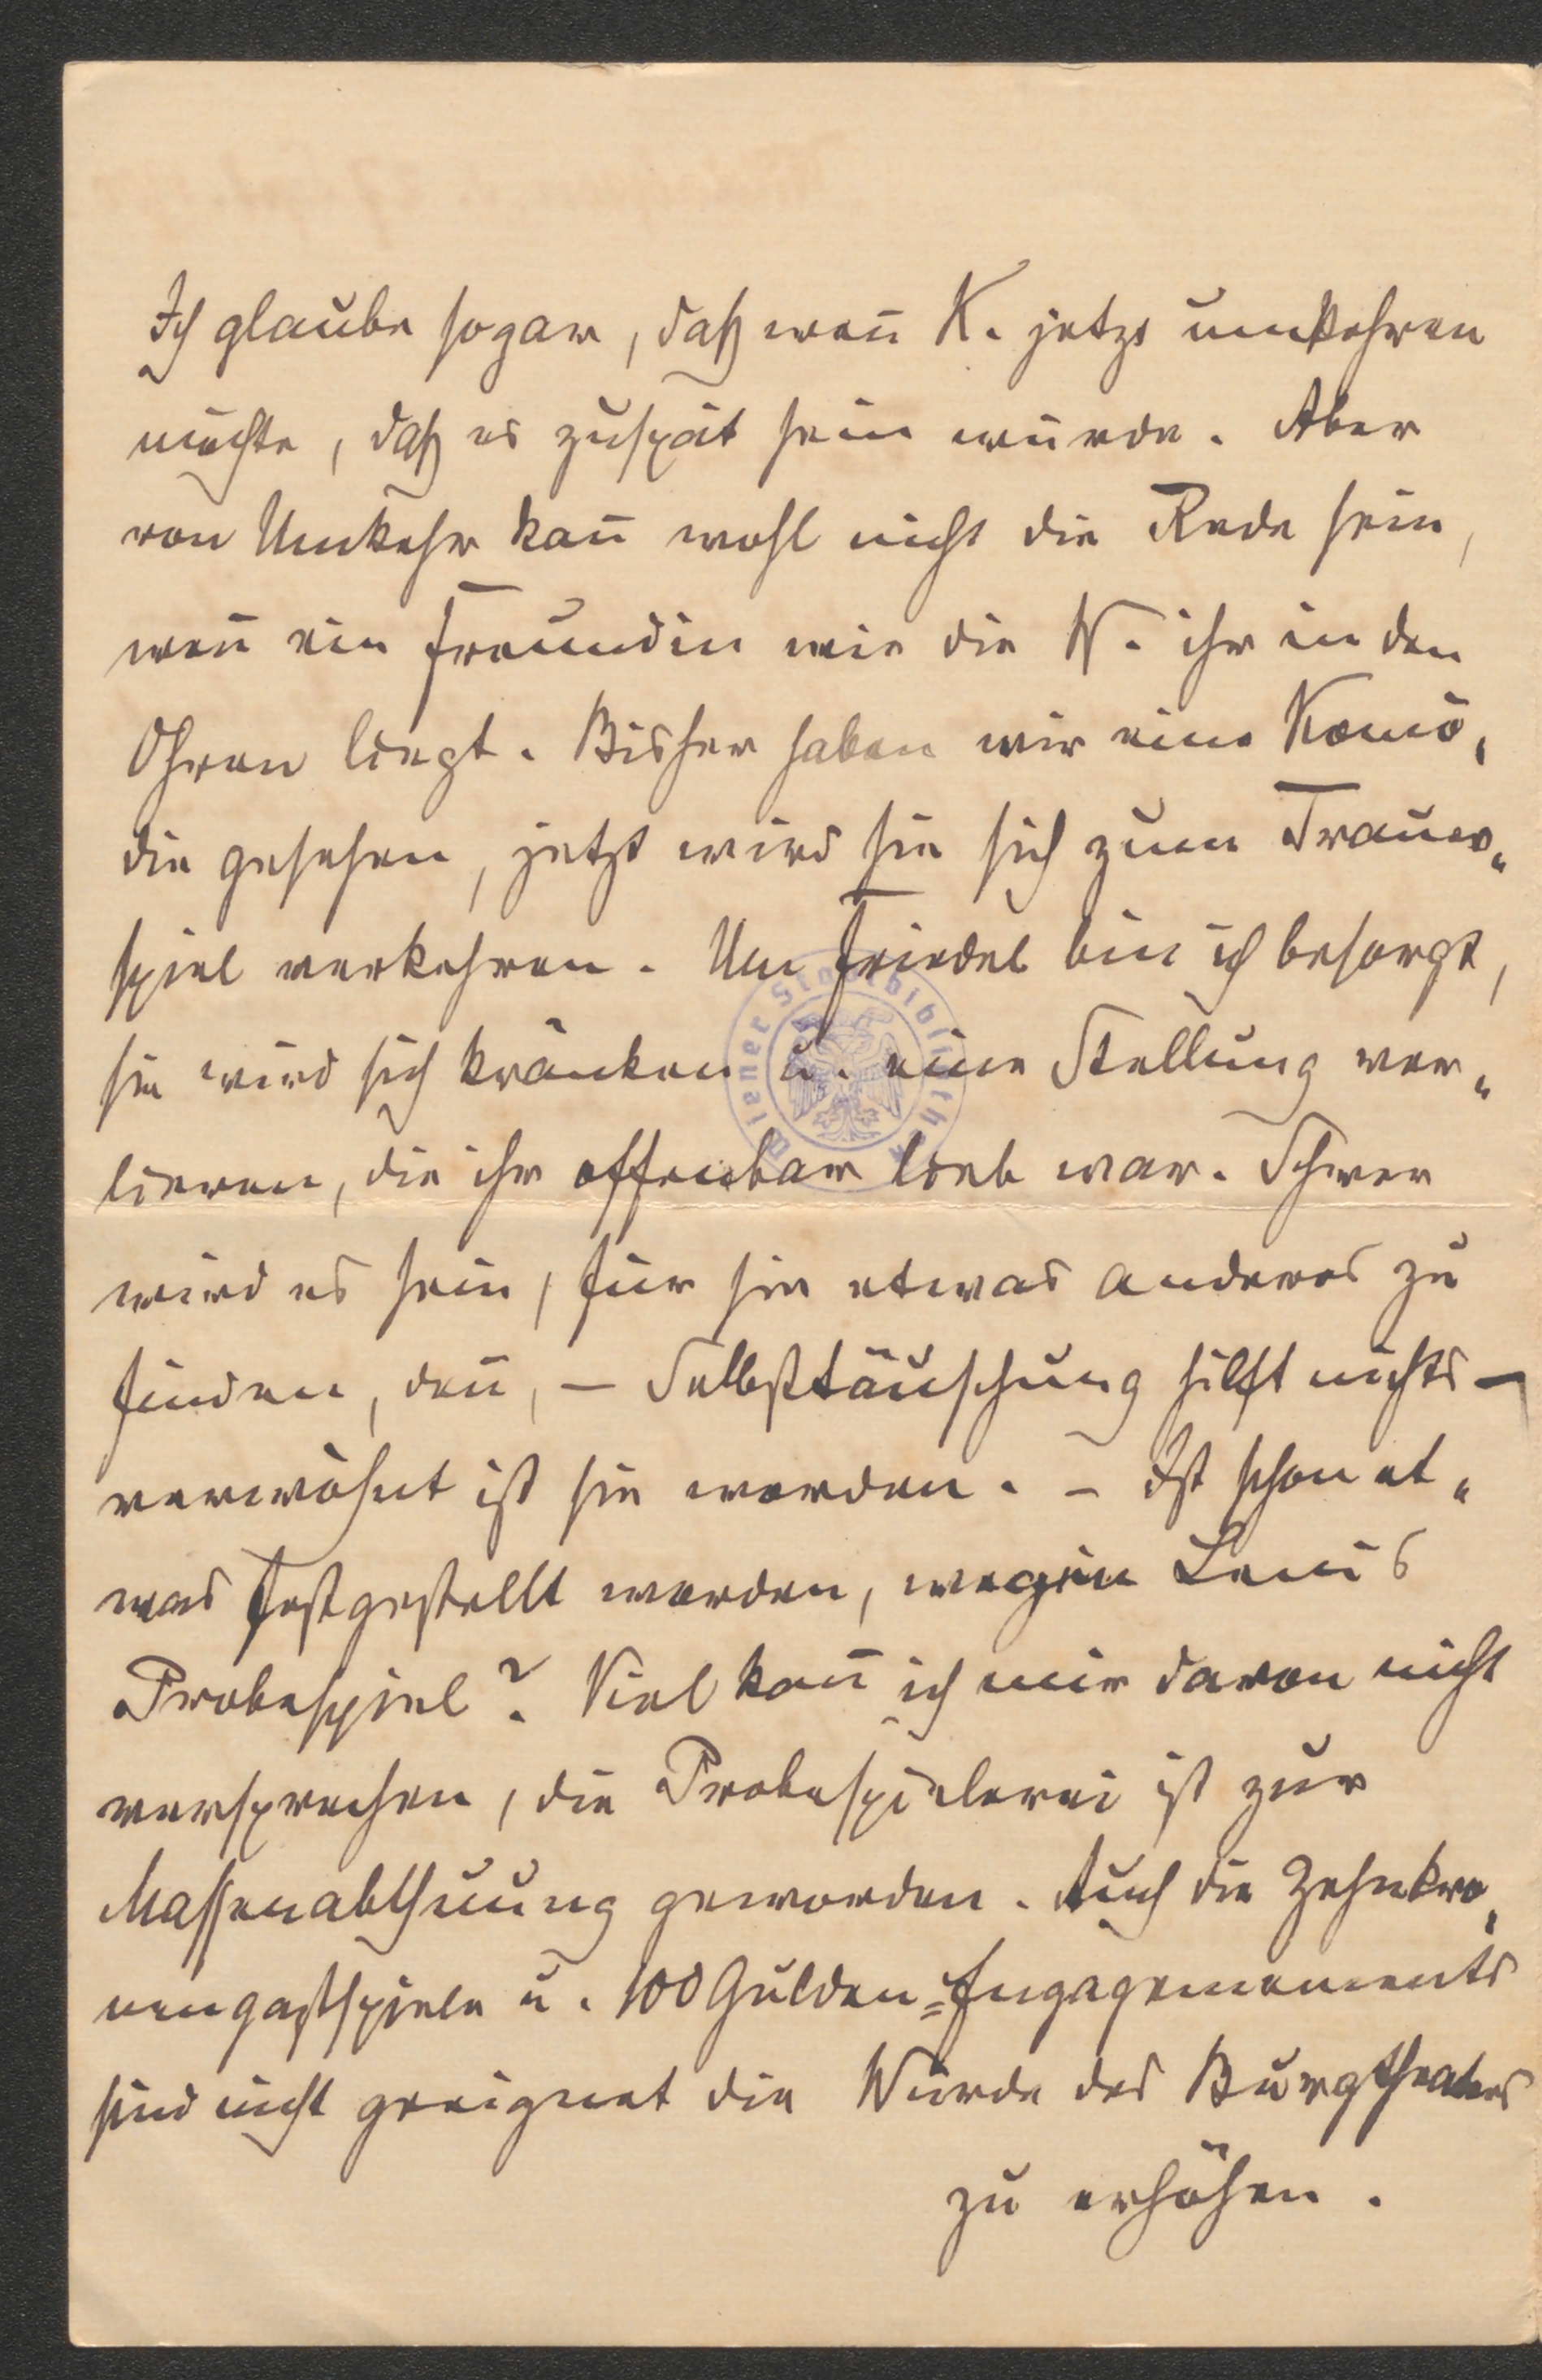 Ich glaube sogar, daß weñ K. jetzt umkehren
möchte, daß es zuspät sein würde. Aber
von Umkehr kañ wohl nicht die Rede sein,
weñ ein Freundin wie die W. ihr in den
Ohren liegt. Bisher haben wir eine Komö„
die gesehen, jetzt wird sie sich zum Trauer„
spiel verkehren. Um Friedel bin ich besorgt,
sie wird sich kränken u. eine Stellung ver„
lieren, die ihr offenbar lieb war. Schwer
wird es sein, für sie etwas anderes zu
finden, deñ, – Selbsttäuschung hilft nichts –
verwöhnt ist sie worden. – Ist schon et„
was festgestellt worden, wegen Lenis
Probespiel? Viel kañ ich mir davon nicht
versprechen, die Probespielerei ist zur
Massenabthuung geworden. Auch die Zehnkro„
nengastspiele u. 100 Gulden=Engagemements
sind nicht geeignet die Würde des Burgtheaters
zu erhöhen.
Wiener Stadtbibliothek